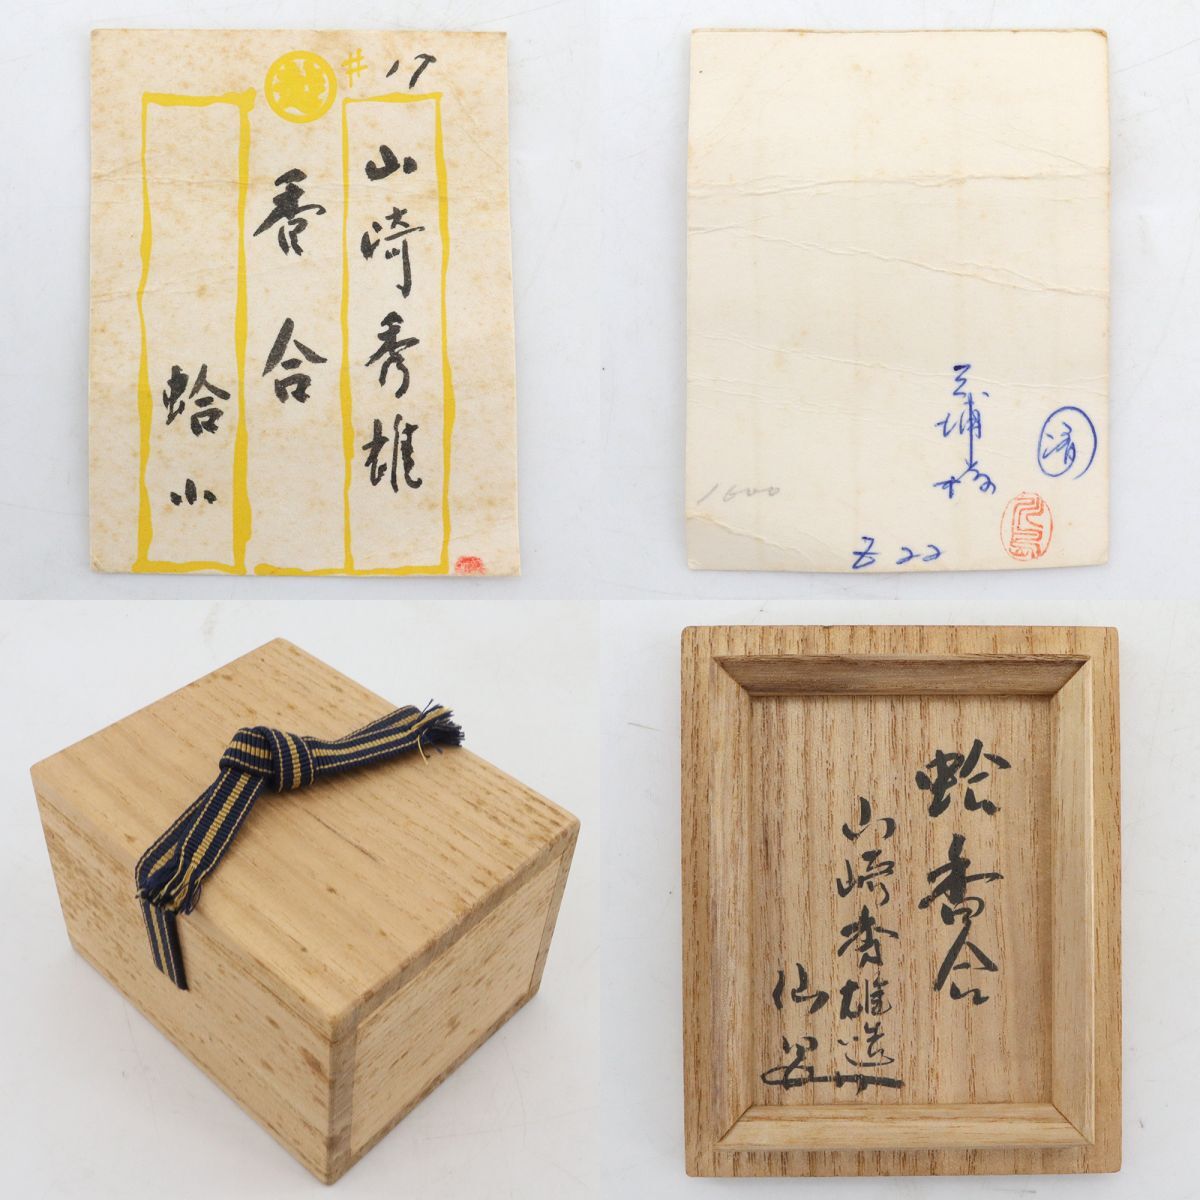 #17
山崎秀雄
香合
蛤
小
済
1600
Z 22
蛤香合
山崎秀雄造